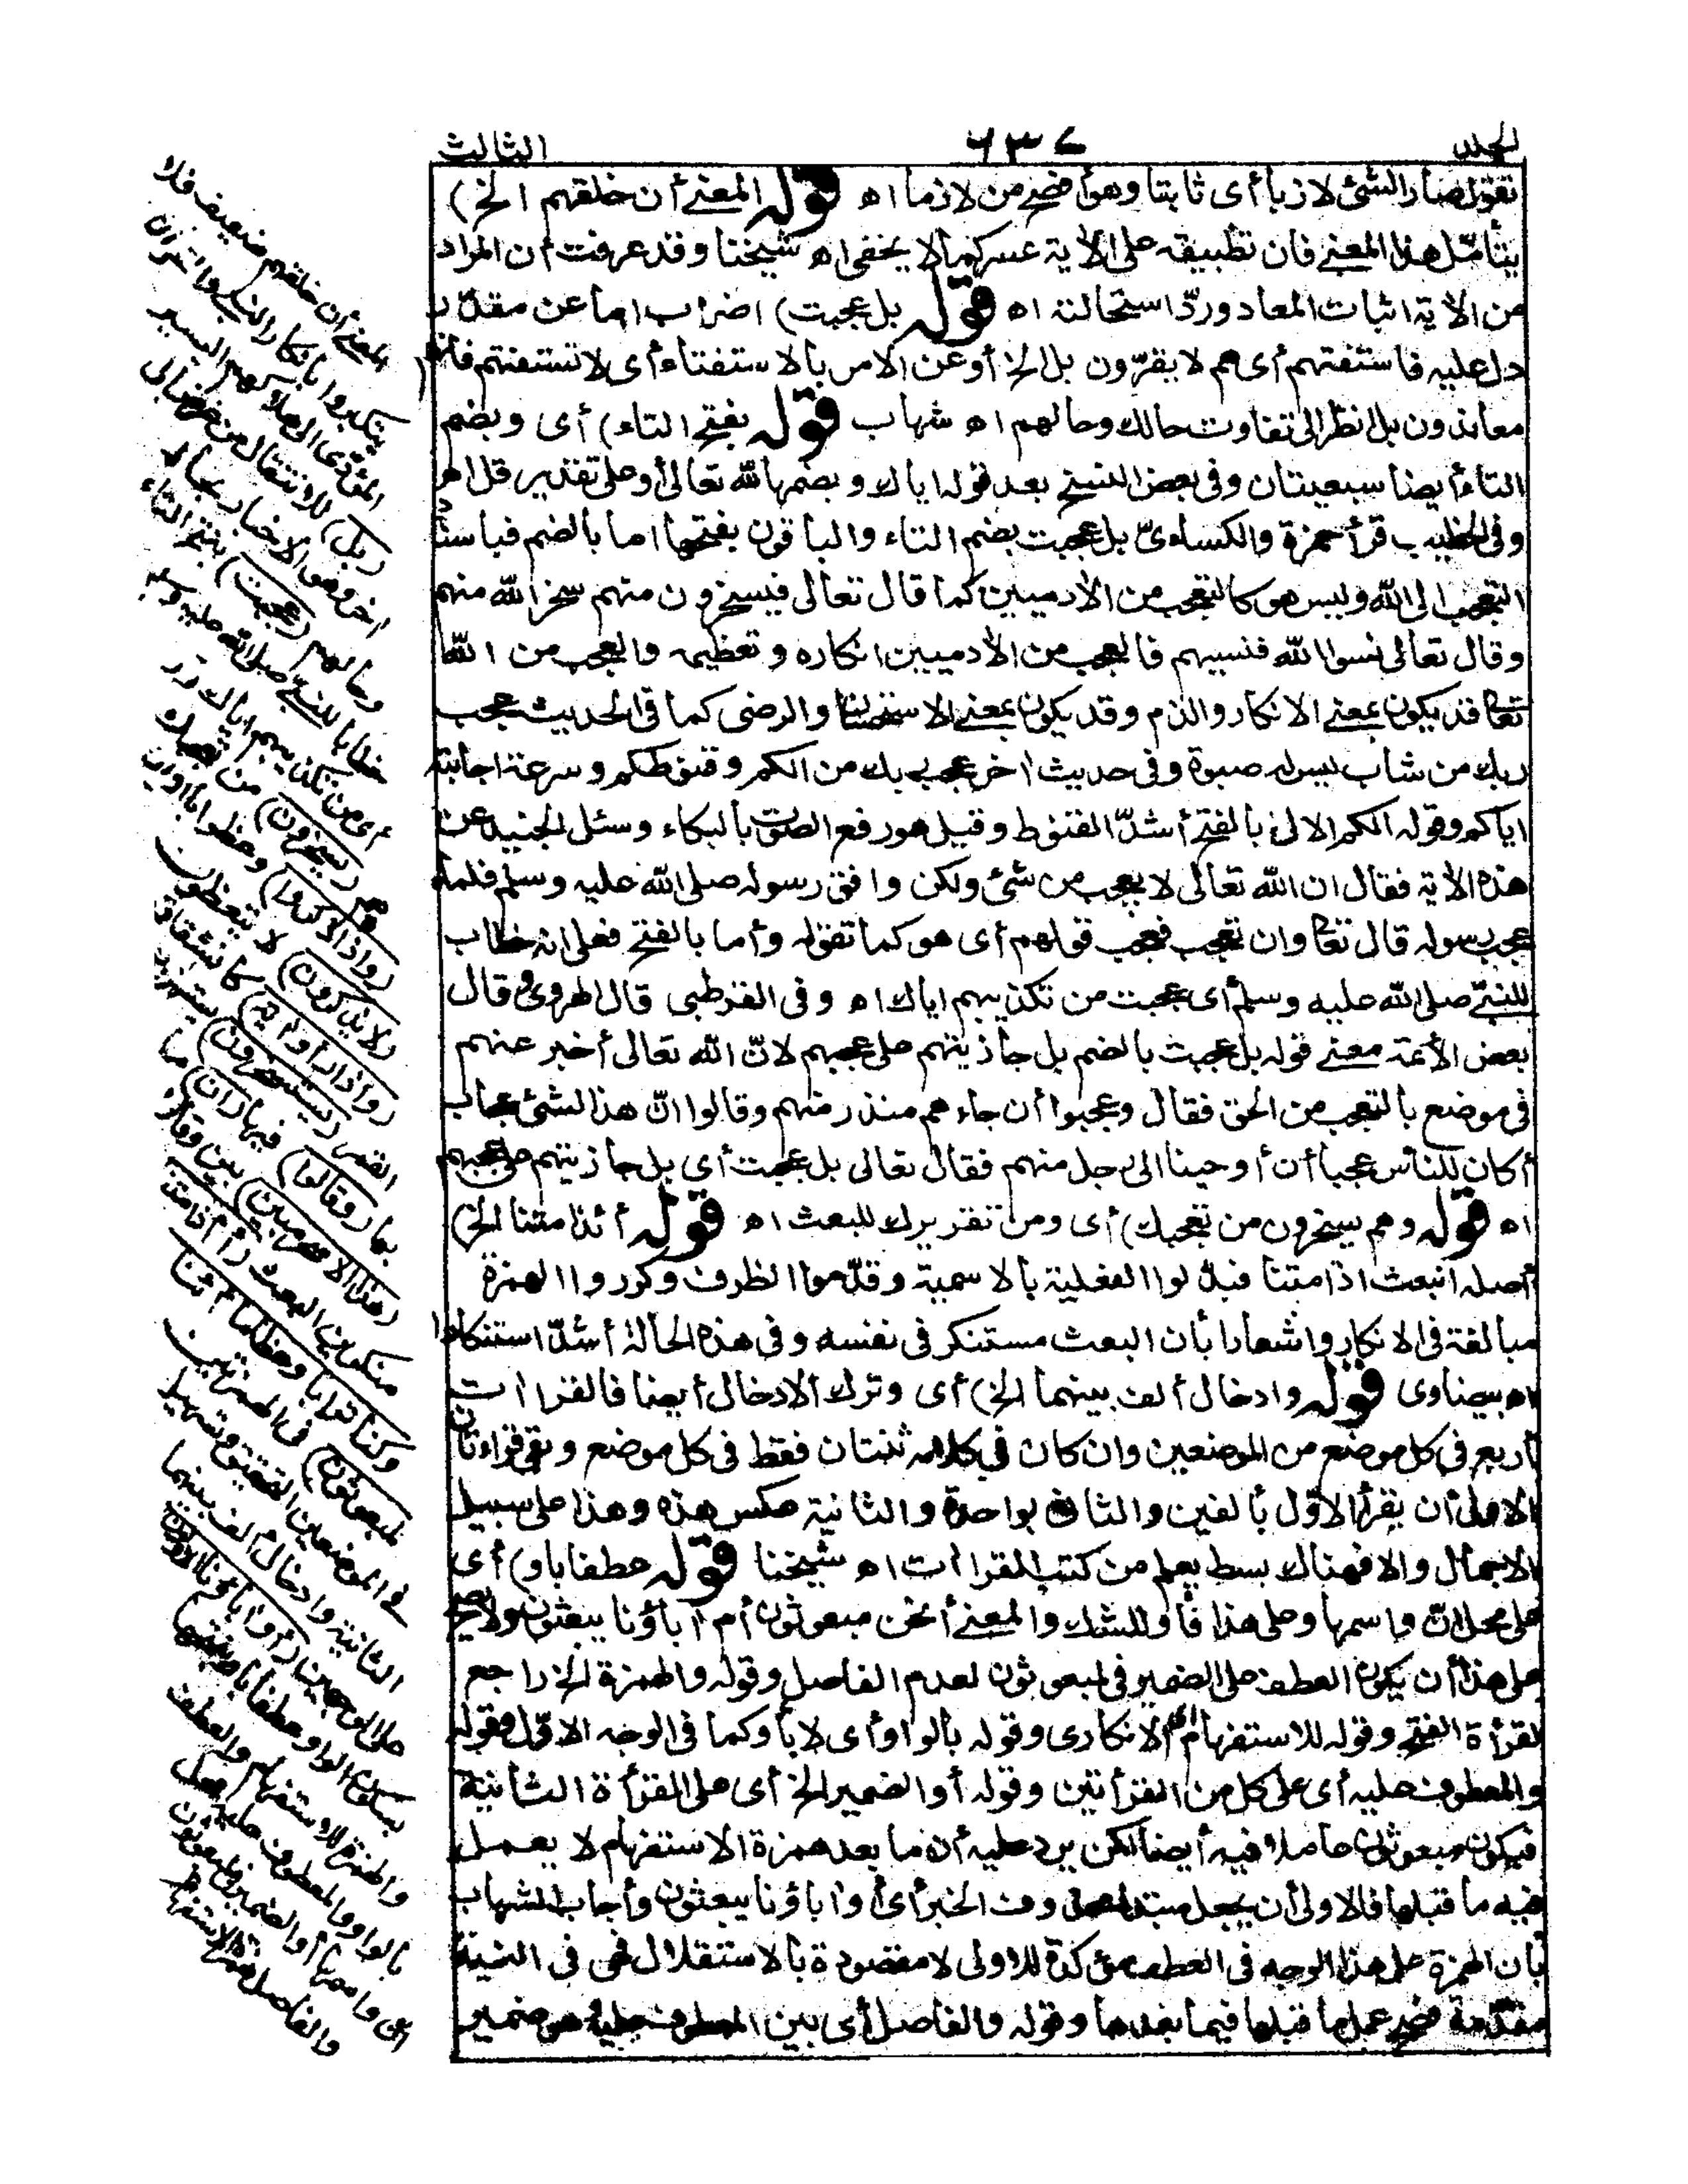 الجلد ٦٣٧ الثالث
تقول صار الشئ لازبا أى ثابتا وهو أفصح من لازما اه قوله المعنى أن خلقهم الخ)
يتأمّل هذا المعنى فان تطبيقه على الآية عسر كما لا يخفى اه شيخنا وقد عرفت أن المراد
من الآية اثبات المعاد وردّ استحالته اه قوله بل عجبت) اضراب اما عن مقدّر
دل عليه فاستفتهم أى هم لا يقرّون بل الخ أو عن الامر بالاستفتاء أى لا تستفتهم فانهم
معاندون بل انظر الى تفاوت حالك وحالهم اه شهاب قوله بفتح التاء) أى وبضم
التاء أيضا سبعيتان وفى بعض النسخ بعد قوله اياك وبضمها لله تعالى أو على تقدير قل اه
وفى الخطيب قرأ حمزة والكساءى بل عجبت بضم التاء والباقون بفتحها اما بالضم فباسناد
التعجب الى الله وليس هو كالتعجب من الآدميين كما قال تعالى فيسخرون منهم سخر الله منهم
وقال تعالى نسوا الله فنسيهم فالعجب من الآدميين انكاره وتعظيمه والعجب من الله
تعالى قد يكون بمعنى الانكار والذم وقد يكون بمعنى الاستحسان والرضى كما فى الحديث عجب
ربك من شاب ليس له صبوة وفى حديث اخر عجب ربك من الكم وقنوطكم وسرعة اجابته
اياكم وقوله الكم الال بالفتح أشدّ القنوط وقيل هو رفع الصوت بالبكاء وسئل الجنيد عن
هذه الآية فقال ان الله تعالى لا يعجب من شئ ولكن وافق رسوله صلى الله عليه وسلم فلما
عجب رسوله قال تعالى وان تعجب فعجب قولهم أى هو كما تقوله وأما بالفتح فعلى انه خطاب
للنبىّ صلى الله عليه وسلم أى عجبت من تكذيبهم اياك اه وفى القرطبى قال الهروى وقال
بعض الأئمة معنى قوله بل عجبت بالضم بل جازيتهم على عجبهم لانّ الله تعالى أخبر عنهم
فى موضع بالتعجب من الحق فقال وعجبوا أن جاءهم منذر منهم وقالوا انّ هذا لشئ عجاب
أكان للناس عجبا أن أوحينا الى رجل منهم فقال تعالى بل عجبت أى بل جازيتهم على عجبهم
اه قوله وهم يسخرون من تعجبك) أى ومن تقريرك للبعث اه قوله أئذا متنا الخ)
أصله أنبعث اذا متنا فبدّلوا الفعلية بالاسمية وقدّموا الظرف وكرروا الهمزة
مبالغة فى الانكار واشعارا بأن البعث مستنكر فى نفسه وفى هذه الحالة أشدّ استنكارا
اه بيضاوى قوله وادخال ألف بينهما الخ) أى وترك الادخال أيضا فالقراات
أربع فى كل موضع من الموضعين وان كان فى كلامه ثنتان فقط فى كل موضع وبقى قراءتان
الاولى أن يقرأ الاوّل بألفين والثانى بواحدة والثانية عكس هذه وهذا على سبيل
الاجمال والا فهناك بسط يعلم من كتب القراات اه شيخنا قوله عطفا باو) أى
على محل انّ واسمها وعلى هذا فأو للشك والمعنى أنحن مبعوثون أم آباؤنا يبعثون ولا يصح
على هذا أن يكون العطف على الضمير فى لمبعوثون لعدم الفاصل وقوله والهمزة الخ راجع
لقرأة الفتح وقوله للاستفهام أى الانكارى وقوله بالواو أى لا بأو كما فى الوجه الاوّل وقوله
والمعطوف عليه أى على كل من القرأتين وقوله أو الضمير الخ أى على القرأة الثانية
فيكون مبعوثون عاملا فيه أيضا لكن يرد عليه أن ما بعد همزة الاستفهام لا يعمل
فيه ما قبلها فالاولى أن يجعل مبتدأ محذوف الخبر أى أوآباؤنا يبعثون وأجاب الشهاب
بأن الهمزة على هذا الوجه فى العطف مؤكدة للاولى لا مقصودة بالاستقلال فهى فى النية
مقدّمة فصح عمل ما قبلها فيما بعدها وقوله والفاصل أى بين المعطوف عليه هو ضمير
المعنى أن خلقهم ضعيف فلا
يتكبروا بانكار النبى والقرآن
المؤدّى الى هلاكهم اليسير
(بل) للانتقال من غرض الى
اخر وهو الاخبار بحاله
وحالهم (عجبت) بفتح التاء
خطابا للنبىّ صلى الله عليه وسلم
أى من تكذيبهم اياك و
هم (يسخرون) من تعجبك
(واذا ذكروا) وعظوا بالقرآن
(لا يذكرون) لا يتعظون
(واذا رأوا آية) كانشقاق
القمر (يستسخرون) يستهزؤن
بها (وقالوا) فيها (ان) ما
(هذا الا سحر مبين) بين وقالوا
منكرين للبعث (أئذا متنا
وكنا ترابا وعظاما أئنا
لمبعوثون) فى الهمزتين
فى الموضعين التحقيق وتسهيل
الثانية وادخال ألف بينهما
على الوجهين (أوآباؤنا الاولون)
بسكون الواو عطفا بأو وبفتحها
والهمزة للاستفهام والعطف
بالواو والمعطوف عليه محل
ان واسمها أو الضمير فى لمبعوثون
والفاصل همزة الاستفهام